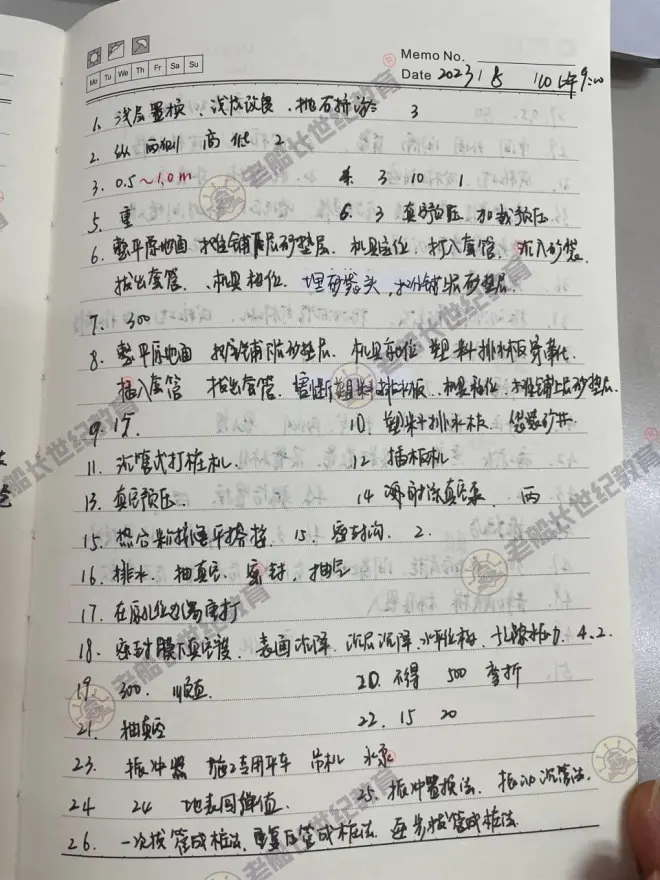 Memo No.
Mo Tu We Th Fr Sa Su
Date 2023 1 8
1. 浅层置换、浅层改良、抛石挤淤 3
2. 纵 两侧 高 低 2
3. 0.5～1.0m 3 10 1
5. 重 6. 3 真空预压 加载预压
6. 整平原地面 摊铺下层砂垫层 机具定位 打入套管 沉入砂袋
拔出套管、机具移位 埋砂袋头 摊铺上层砂垫层
7. 300
8. 整平原地面 摊铺下层砂垫层 机具就位 塑料排水板穿靴
插入套管 拔出套管 割断塑料排水板 机具移位 摊铺上层砂垫层
9. 15 10. 塑料排水板 袋装砂井
11. 沉管式打桩机 12 插板机
13. 真空预压 14 射流真空泵 两
15. 热合 平搭接 15 密封沟 2.
16. 排水 抽真空 密封
17.
18. 密封膜下真空度 表面沉降 沉层沉降 水平位移 孔隙 4.2
19. 300 20. 不得 500 弯折
21. 抽真空 22. 15 20
23. 振冲器 施工专用平车 吊机 水泵
24 24 地表回弹值 25. 振冲置换法 振动沉管法
26. 一次拔管成桩法 重复压管成桩法 逐步拔管成桩法
老船长世纪教育